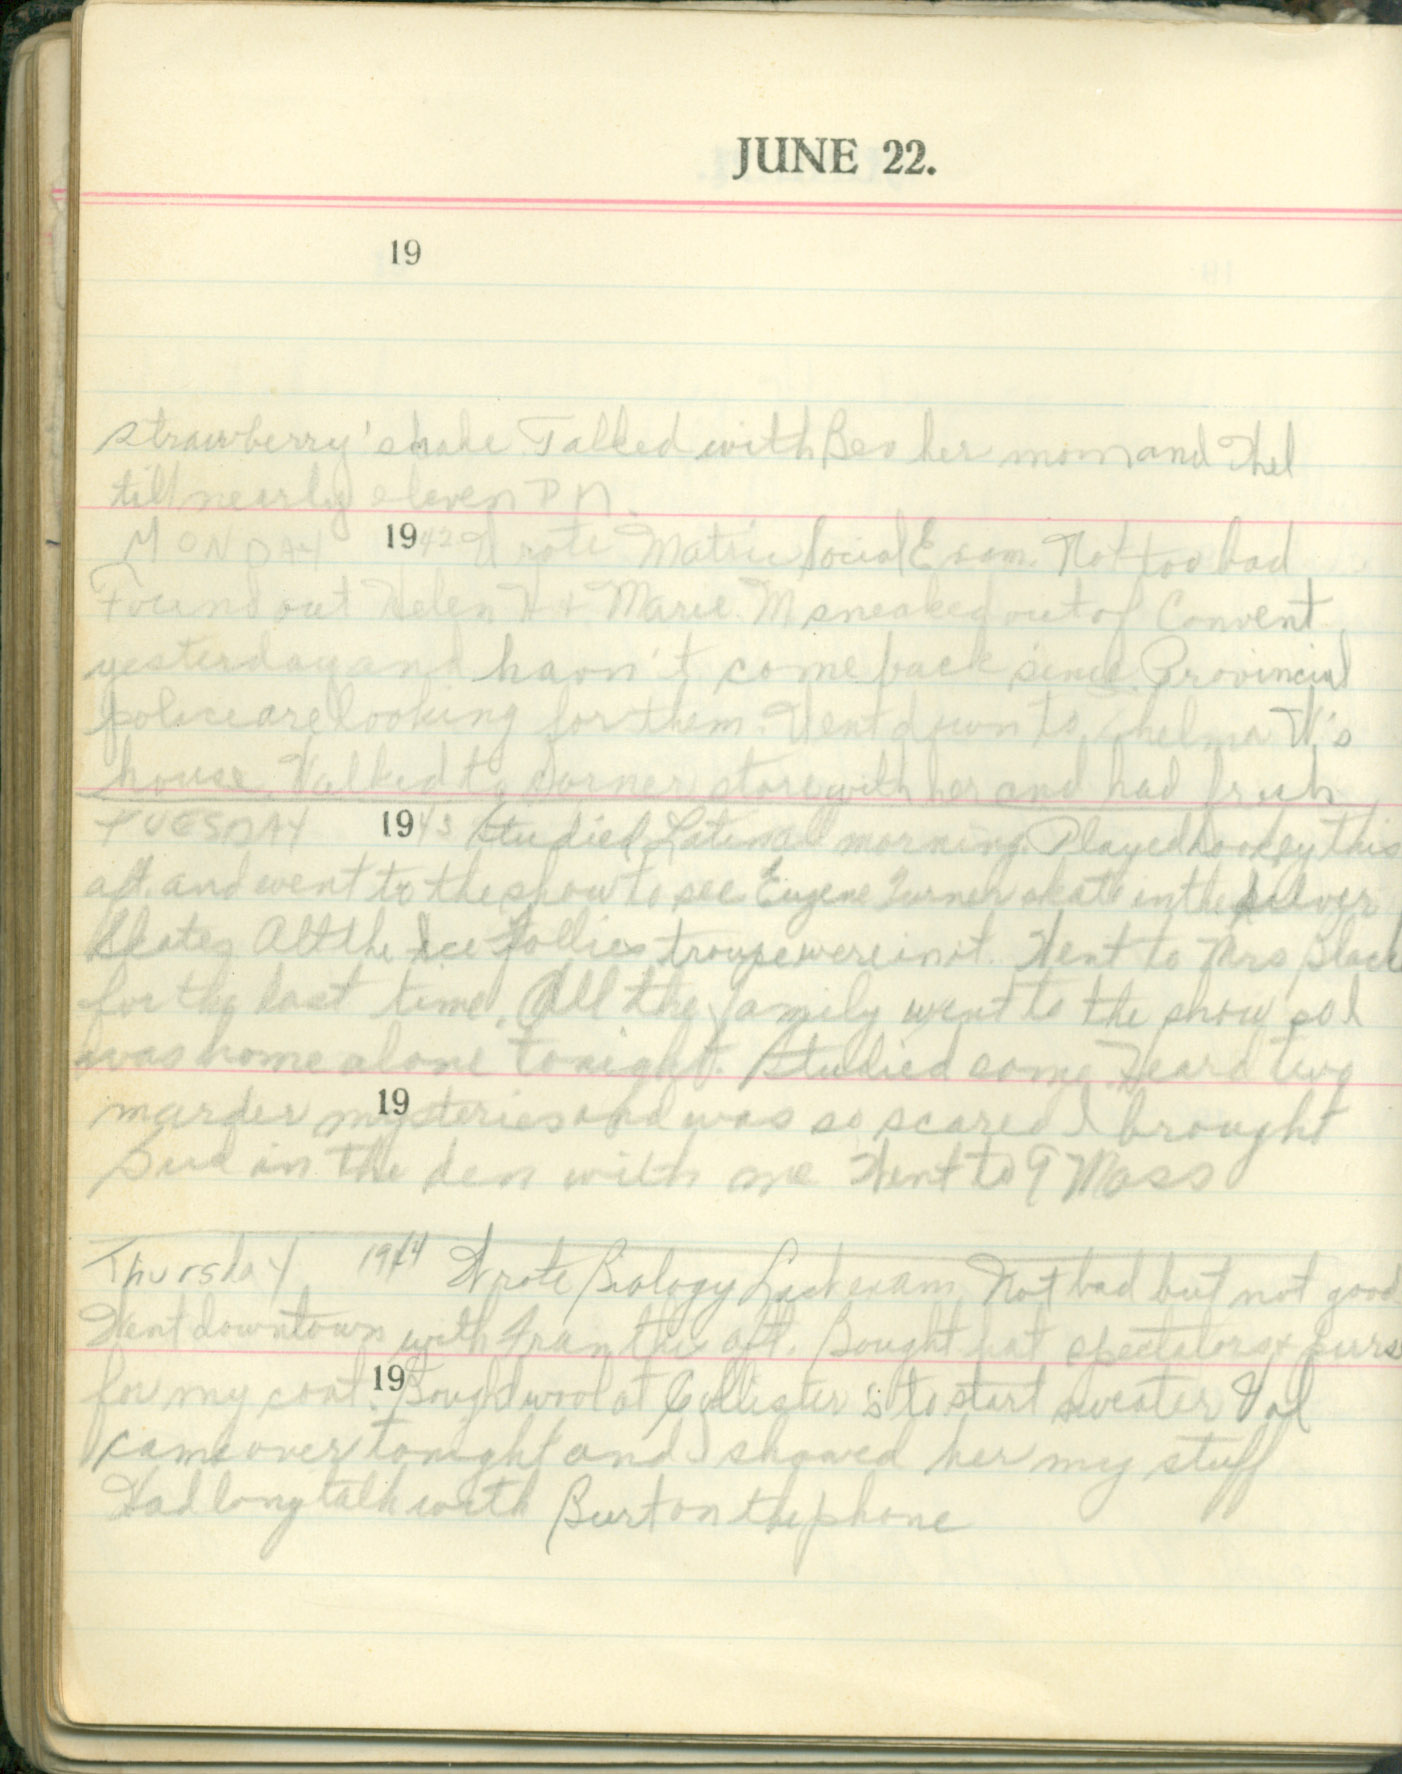 JUNE 22.
19
strawberry shake Talked with Bev her mom and Thel
till nearly eleven P M.
MONDAY 1942 Wrote Matric Social Exam. Not too bad
Found out Helen H + Marie M sneaked out of Convent
yesterday and havn't come back since. Provincial
police are looking for them. Went down to Thelma W's
house. Walked to corner store with her and had fresh
TUESDAY 1943 Studied Latin all morning. Played hookey this
aft. and went to the show to see Eugene Turner skate in the Silver
Skates All the Ice Follies troupe were in it. Went to Mrs Black
for the last time. All the family went to the show so I
was home alone tonight. Studied some. Heard two
19
murder mysteries and was so scared I brought
in the den with me Went to 9 Mass
Thursday 1944 Wrote Biology Last exam Not bad but not good
Went downtown with Fran this aft. Bought hat spectators + purse
19
for my coat. Bought wool at to start sweater Val
came over tonight and I showed her my stuff
Had long talk with Burt on the phone